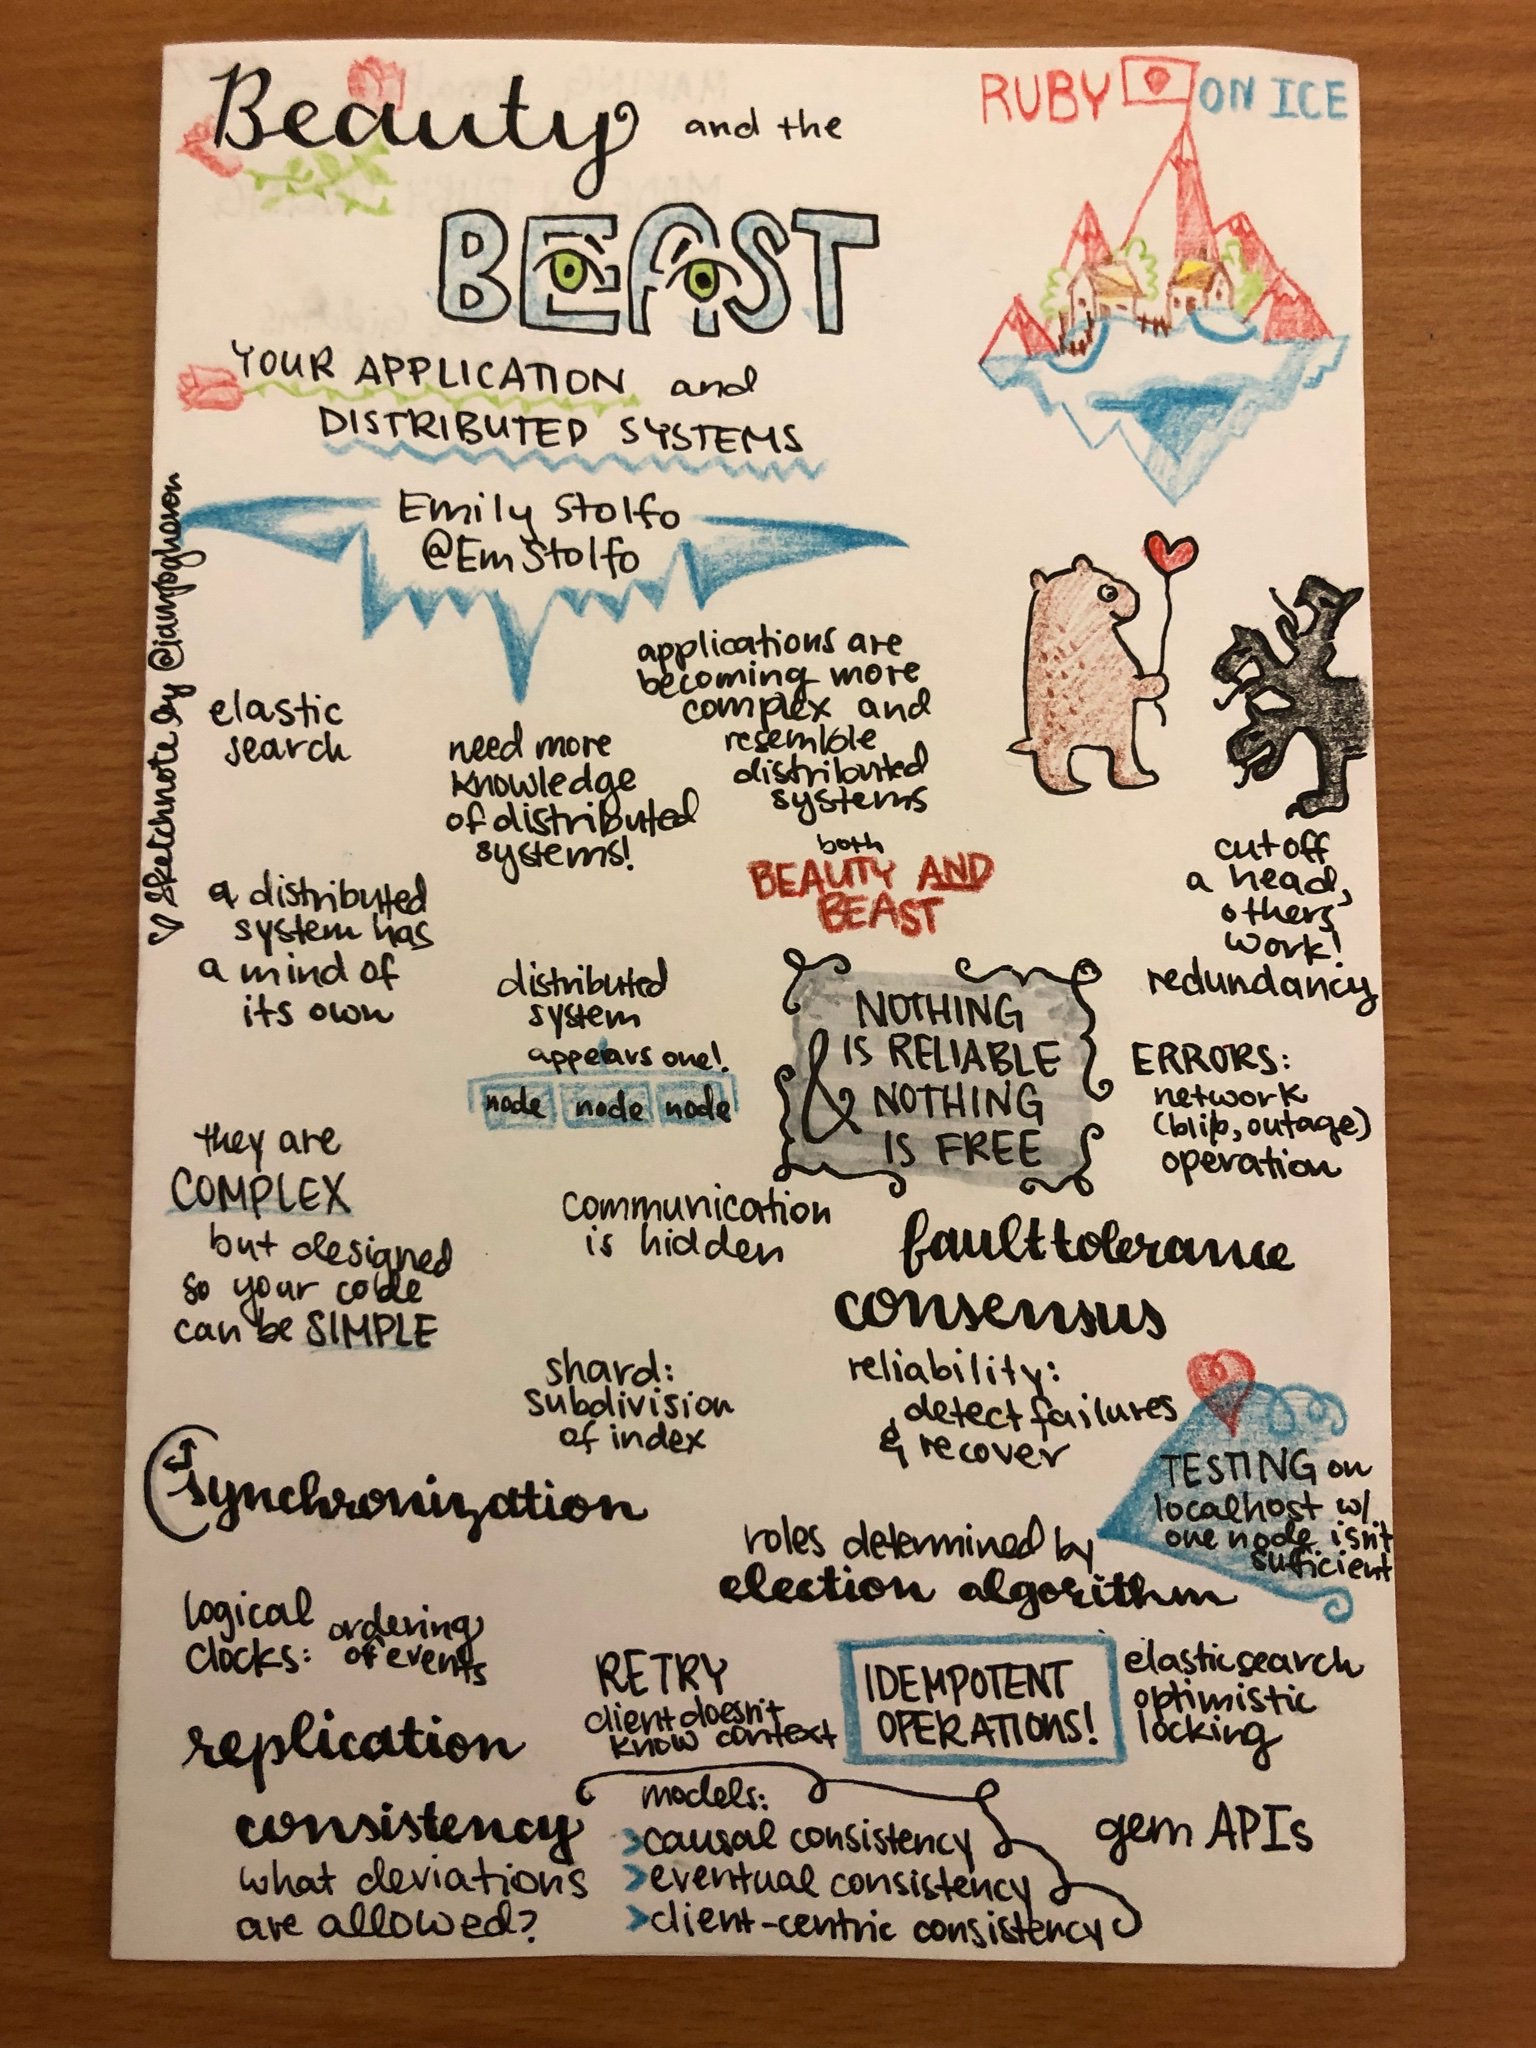 Beauty and the
BEAST
YOUR APPLICATION and
DISTRIBUTED SYSTEMS
RUBY ON ICE
Emily Stolfo
@EmStolfo
Sketchnote by @iampogheron
elastic
search
need more
knowledge
of distributed
systems!
applications are
becoming more
complex and
resemble
distributed
systems
both
BEAUTY AND
BEAST
cut off
a head,
others
work!
redundancy
a distributed
system has
a mind of
its own
distributed
system
appears one!
node node node
NOTHING
IS RELIABLE
& NOTHING
IS FREE
ERRORS:
network
(blip, outage)
operation
they are
COMPLEX
but designed
so your code
can be SIMPLE
communication
is hidden
fault tolerance
consensus
shard:
subdivision
of index
reliability:
detect failures
& recover
TESTING on
localhost w/.
one node isn't
sufficient
synchronization
roles determined by
election algorithm
logical
clocks: ordering
of events
RETRY
client doesn't
know context
IDEMPOTENT
OPERATIONS!
elasticsearch
optimistic
locking
replication
consistency
what deviations
are allowed?
models:
>causal consistency
>eventual consistency
>client-centric consistency
gem APIs